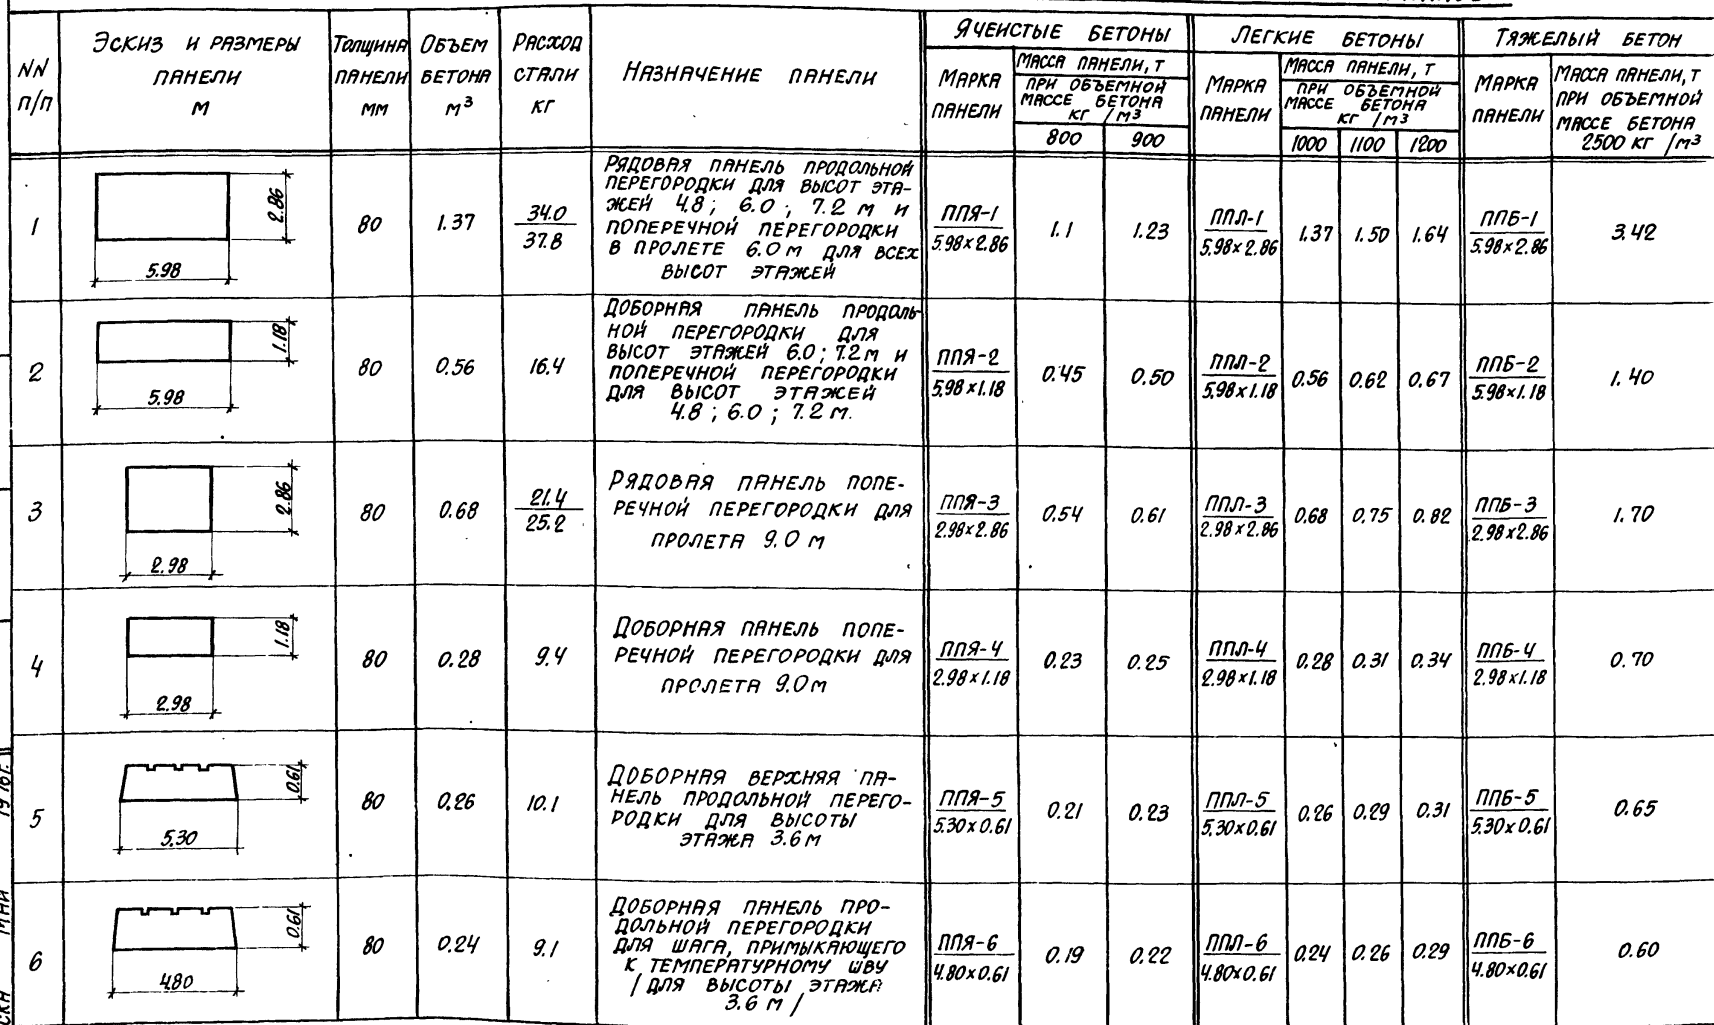 NN п/п
Эскиз и размеры панели м
Толщина панели мм
Объем бетона м³
Расход стали кг
Назначение панели
Ячеистые бетоны
Марка панели
Масса панели, т
при объемной массе бетона кг/м³
800
900
Легкие бетоны
Марка панели
Масса панели, т
при объемной массе бетона кг/м³
1000
1100
1200
Тяжелый бетон
Марка панели
Масса панели, т
при объемной
массе бетона
2500 кг/м³
1
2.86
5.98
80
1.37
34.0
37.8
Рядовая панель продольной
перегородки для высот эта-
жей 4.8; 6.0; 7.2 м и
поперечной перегородки
в пролете 6.0 м для всех
высот этажей
ППЯ-1
5.98×2.86
1.1
1.23
ППЛ-1
5.98×2.86
1.37
1.50
1.64
ППБ-1
5.98×2.86
3.42
2
1.18
5.98
80
0.56
16.4
Доборная панель продоль-
ной перегородки для
высот этажей 6.0; 7.2 м и
поперечной перегородки
для высот этажей
4.8; 6.0; 7.2 м.
ППЯ-2
5.98×1.18
0.45
0.50
ППЛ-2
5.98×1.18
0.56
0.62
0.67
ППБ-2
5.98×1.18
1.40
3
2.86
2.98
80
0.68
21.4
25.2
Рядовая панель попе-
речной перегородки для
пролета 9.0 м
ППЯ-3
2.98×2.86
0.54
0.61
ППЛ-3
2.98×2.86
0.68
0.75
0.82
ППБ-3
2.98×2.86
1.70
4
1.18
2.98
80
0.28
9.4
Доборная панель попе-
речной перегородки для
пролета 9.0 м
ППЯ-4
2.98×1.18
0.23
0.25
ППЛ-4
2.98×1.18
0.28
0.31
0.34
ППБ-4
2.98×1.18
0.70
5
0.61
5.30
80
0.26
10.1
Доборная верхняя па-
нель продольной перего-
родки для высоты
этажа 3.6 м
ППЯ-5
5.30×0.61
0.21
0.23
ППЛ-5
5.30×0.61
0.26
0.29
0.31
ППБ-5
5.30×0.61
0.65
6
0.61
4.80
80
0.24
9.1
Доборная панель про-
дольной перегородки
для шага, примыкающего
к температурному шву
/для высоты этажа
3.6 м/
ППЯ-6
4.80×0.61
0.19
0.22
ППЛ-6
4.80×0.61
0.24
0.26
0.29
ППБ-6
4.80×0.61
0.60